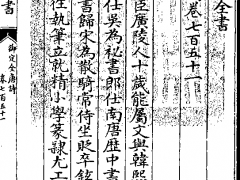 全書
卷七百五十一
臣廣陵人十歲能屬文與韓熙
仕吳為秘書郎仕南唐歷中書
書歸宋為散騎常侍坐貶卒鉉
往執筆立就精小學篆隸尤工
書
御定全唐詩
卷七百五十一